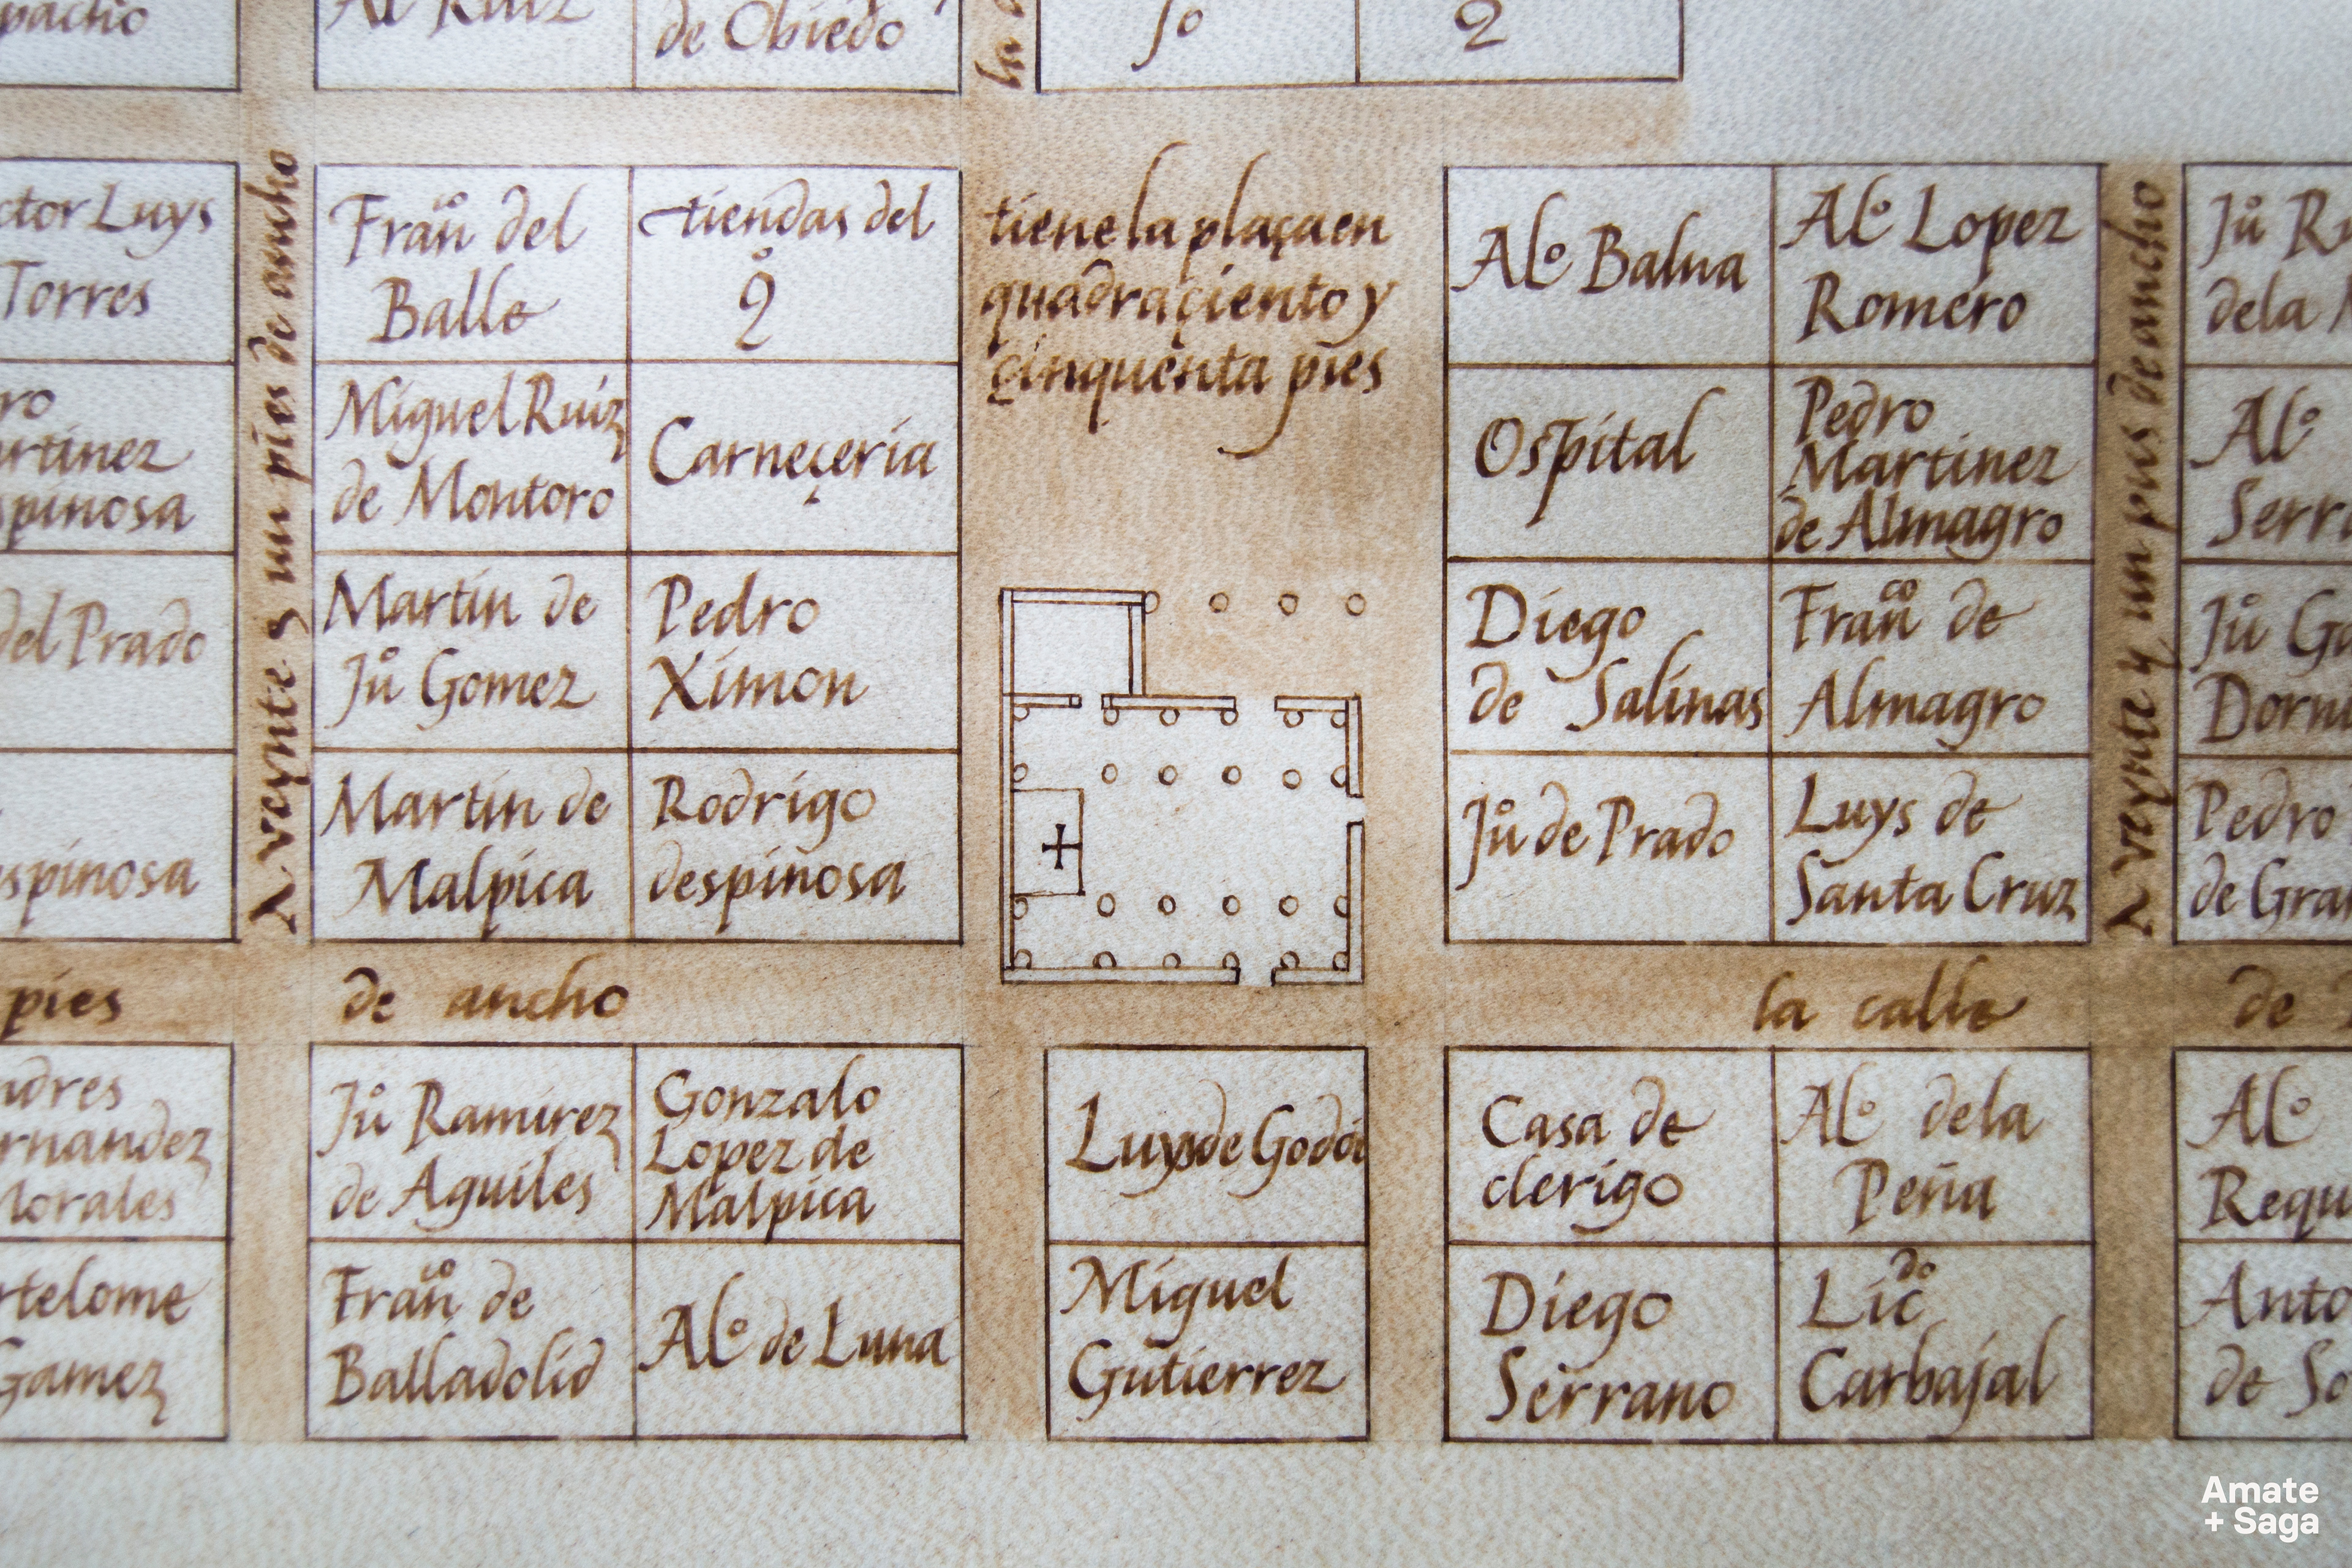 pacho
Al Ruiz
de Obiedo
la
so
2
ctor Luys
Torres
Fran co del
Balle
tiendas del
qº
tiene la plaça en
quadra çiento y
çinquenta pies
Alº Balua
Alº Lopez
Romero
Juº R
dela
ro
artinez
spinosa
Miguel Ruiz
de Montoro
Carneçeria
Ospital
Pedro
Martinez
de Almagro
Alº
Serr
del Prado
Martin de
Juº Gomez
Pedro
Ximon
Diego
de Salinas
Franco de
Almagro
Juº G
Dorm
spinosa
Martin de
Malpica
Rodrigo
despinosa
Juº de Prado
Luys de
Santa Cruz
Pedro
de Gra
A veynte y un pies de ancho
A veynte y un pies de ancho
pies de ancho
la calle de
ndres
rnandez
Morales
Juº Ramirez
de Aguiles
Gonzalo
Lopez de
Malpica
Luys de Godoi
Casa de
clerigo
Alº dela
Peña
Alº
Requ
rtelome
Gamez
Franco de
Balladolid
Alº de Luna
Miguel
Gutierrez
Diego
Serrano
Licdo
Carbajal
Anto
de So
Amate
+ Saga